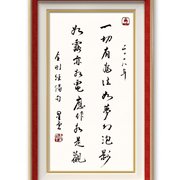 二〇一八年
一切有為法如夢幻泡影
如露亦如電應作如是觀
金剛經偈句 星雲